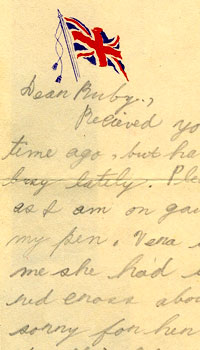 Dear Ruby.,
Recieved yo
time ago, but ha
busy lately. Ple
as I am on gau
my pen. Vera
me she had
red cross abou
sorry for her